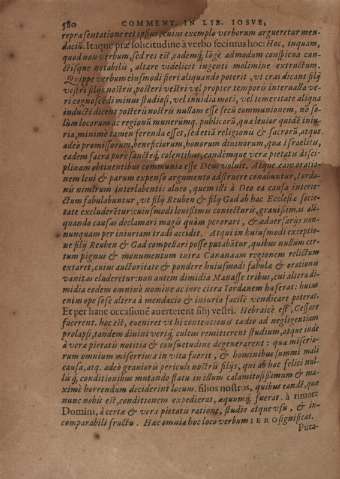 580 COMMENT. IN LIB. IOSVE,
repræsentatione rei ipsius cuius exemplo verborum argueretur men-
daciũ. Itaque præ solicitudine à verbo fecimus hoc: Hoc, inquam,
quod non verbum, sed res est, eademq́; longè admodum conspicua cun-
ctisque notabilis, altare videlicet ingenti molimine extructum.
Quippe verbum eiusmodi fieri aliquando poterit, vt cras dicant filij
vestri filijs nostris, posteri vestri vel propter temporis interualla ve-
ri cognoscendi minus studiosi, vel inuidia moti, vel temeritate aliqua
inducti dicent posteris nostris nullam esse secũ communionem, nõ so-
lùm locorum ac regionũ munerumq́; publicorũ, quæ leuior quidẽ iniu-
ria, minimè tamen ferenda esset, sed etiã religionis & sacrorũ, atque
adeò promissorum, beneficiorum, honorum diuinorum, quæ Israelitis,
eadem sacra pure sanctèq́; colentibus, eandemque veræ pietatis disci-
plinam obtinentibus communia esse Deus voluit. Atque eam
nem leui & parum expenso argumento adstruere conabuntur, Iorda-
nis nimirum interlabentis alueo, quem illi à Deo ea causa interie-
ctum fabulabuntur, vt filij Reuben & filij Gad ab hac Ecclesiæ socie-
tate excluderẽtur: cuiusmodi leuissimis coniecturis, grauissimas ali-
quando causas declamari magis quàm perorari, & aduersarijs non-
nunquam per iniuriam tradi accidit. Atqui in huiusmodi exceptio-
ne filij Reuben & Gad compellari posse putabãtur, quibus nullum cer-
tum pignus & monumentum intra Cananæam regionem relictum
extaret, cuius auctoritate & pondere huiusmodi fabula & rationis
vanitas eluderetur: non autem dimidia Manasse tribus, cui altera di-
midia eodem omninò nomine ac iure citra Iordanem hæserat: huius
enim ope sese altera à mendacio & iniuria facilè vendicare poterat.
Et per hanc occasionẽ auerterent filij vestri. Hebraicè est, Cessare
facerent. hoc est, eueniret vt hi contentionis tædio ad negligentiam
prolapsi, tandem diuini veriq́; cultus remitterent studium, atque inde
à vera pietatis notitia & consuetudine degenerarent: quæ miseria-
rum omnium miserrima in vita fuerit, & hominibus summi mali
causa, atq; adeò grauioris periculi nostris filijs, qui ab hac felici nul-
liq́; conditionibus mutando statu in istum calamitosissimum &
ximè horrendum acciderint locum. filios nostros, quibus eandẽ, quæ
nunc nobis est, conditionem expedierat, æquumq́; fuerat. à timore
Domini, à certa & vera pietatis ratione, studio atque vsu, & in-
comparabili fructu. Hac omnia hoc loco verbum IERO significat.
Puta-